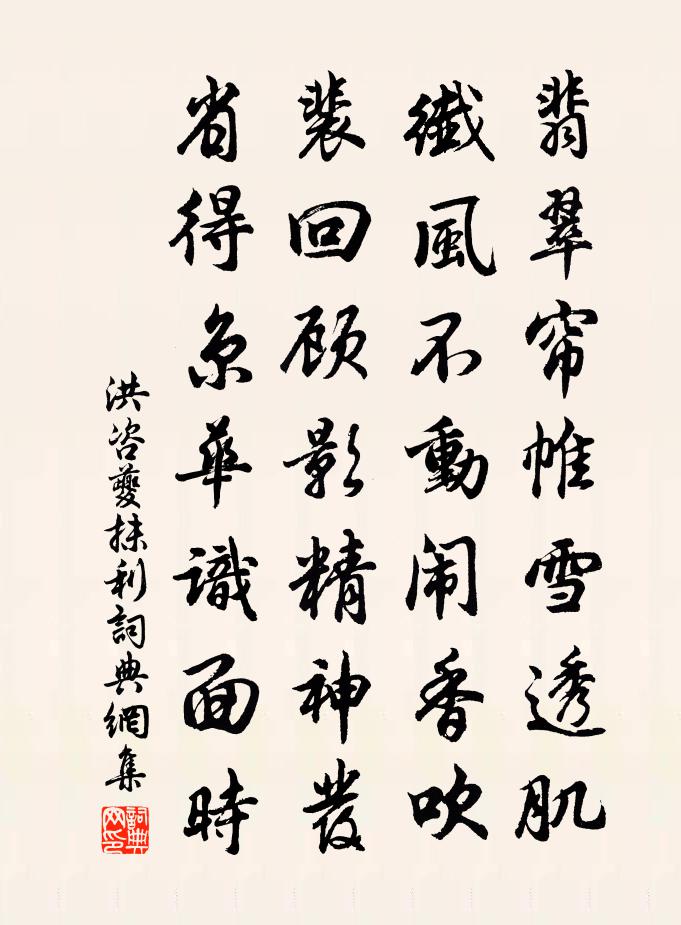 翡翠帘帷雪透肌
纖風不動闹香吹
裴回顾影精神發
省得京華識面時
洪咨夔抹利詞典網集
詞典网印